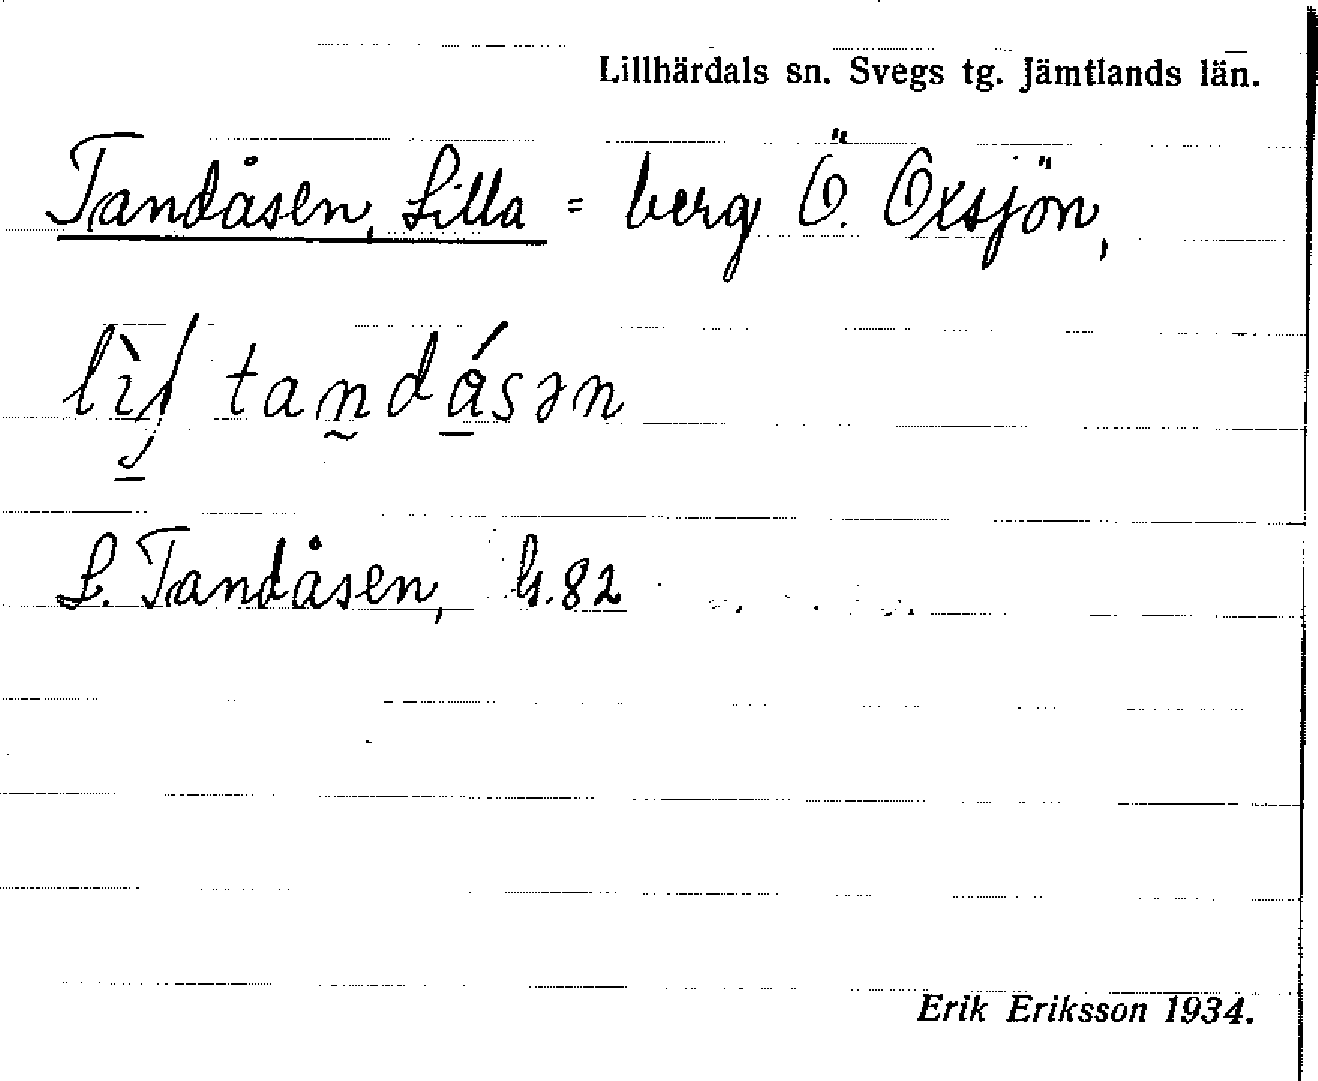 Lillhärdals sn. Svegs tg. Jämtlands län.
Tandåsen, Lilla = berg Ö. Öxsjön,
tandåsən
L. Tandåsen, G.82
Erik Eriksson 1934.